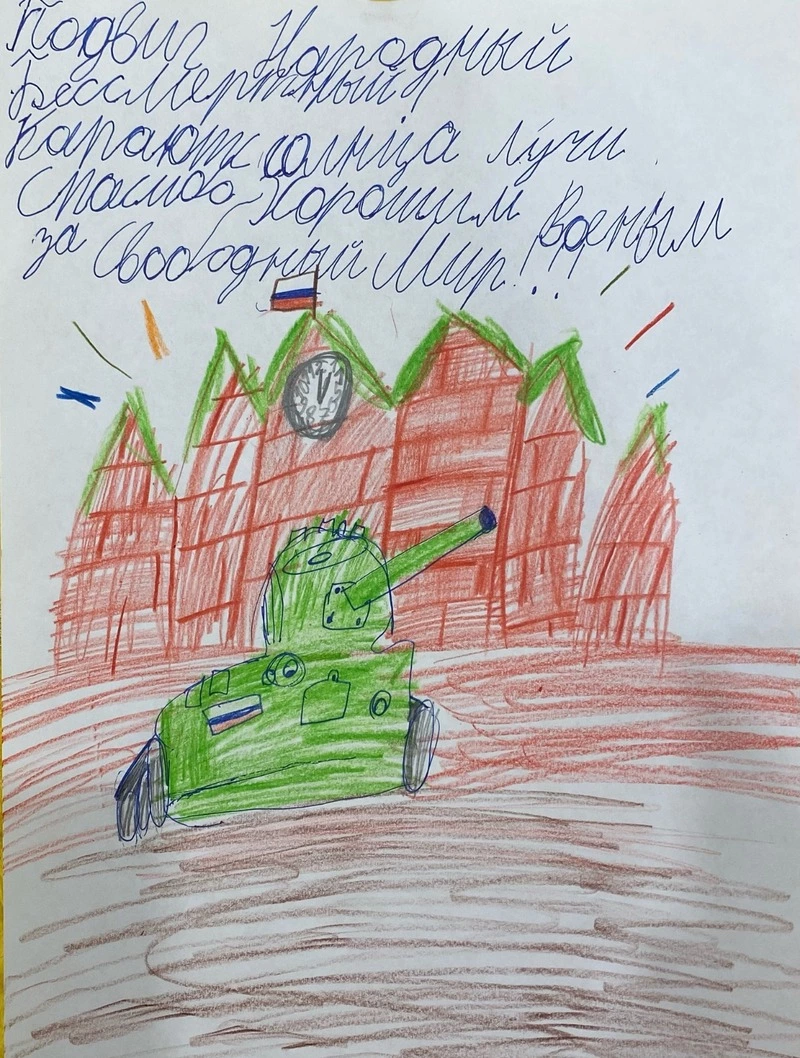 Подвиг Народный
Бессмертный
Карают солнца лучи
Спасибо Хорошим Военым
за Свободный Мир!!!